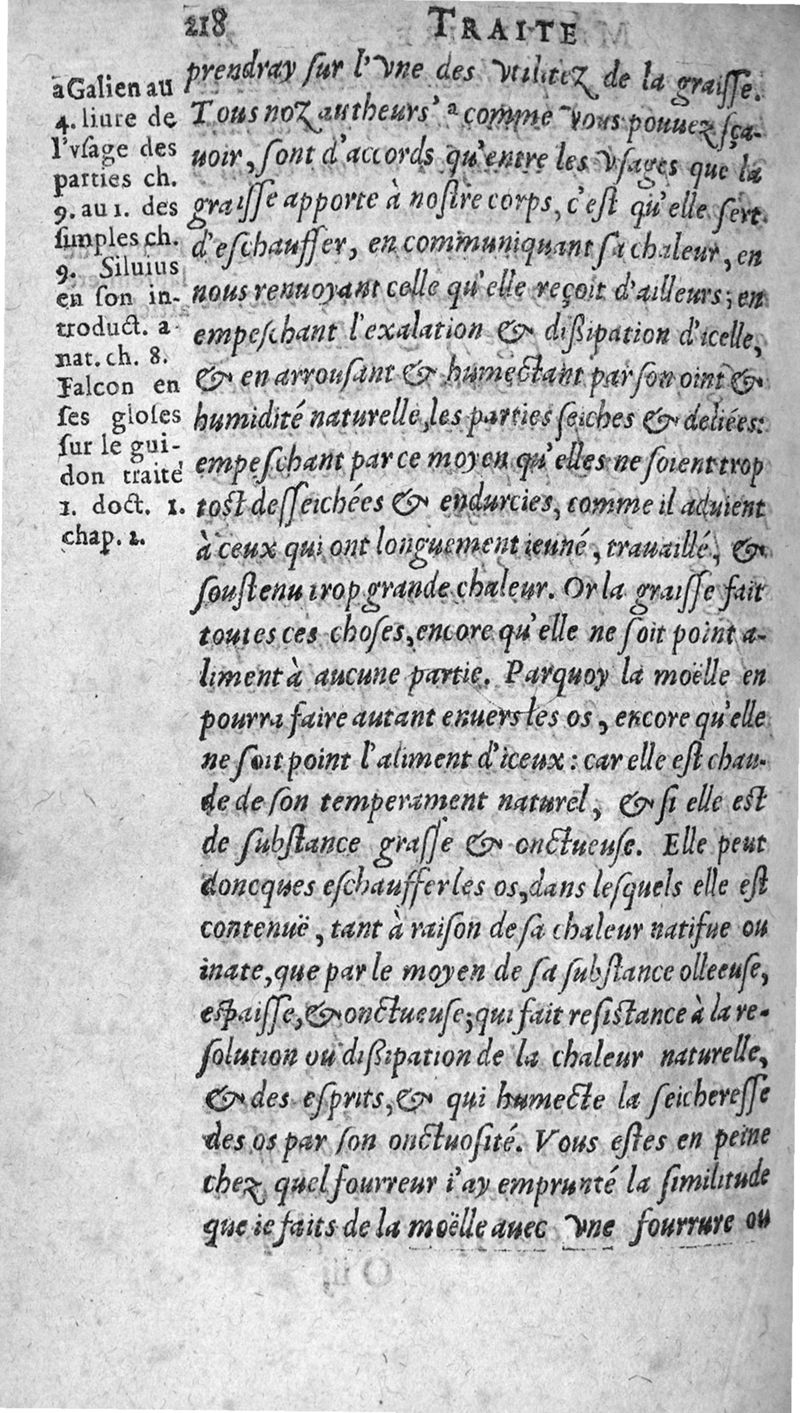 218 TRAITE
prendray sur l'vne des vtilitez de la graisse.
Tous noz autheurs a comme vous pouuez sça-
uoir, sont d'accords qu'entre les vsages que la
graisse apporte à nostre corps, c'est qu'elle sert
d'eschauffer, en communiquant sa chaleur, en
nous renuoyant celle qu'elle reçoit d'ailleurs; en
empeschant l'exalation & dißipation d'icelle,
& en arrousant & humectant par son oint &
humidité naturelle, les parties seiches & deliées:
empeschant par ce moyen qu'elles ne soient trop
tost desseichées & endurcies, comme il aduient
à ceux qui ont longuement ieuné, trauaillé, &
soustenu trop grande chaleur. Or la graisse fait
toutes ces choses, encore qu'elle ne soit point a-
liment à aucune partie. Parquoy la moëlle en
pourra faire autant enuers les os, encore qu'elle
ne soit point l'aliment d'iceux: car elle est chau-
de de son temperament naturel, & si elle est
de substance grasse & onctueuse. Elle peut
doncques eschauffer les os, dans lesquels elle est
contenuë, tant à raison de sa chaleur natifue ou
inate, que par le moyen de sa substance olleeuse,
espaisse, & onctueuse; qui fait resistance à la re-
solution ou dißipation de la chaleur naturelle,
& des esprits, & qui humecte la seicheresse
des os par son onctuosité. Vous estes en peine
chez quel fourreur i'ay emprunté la similitude
que ie faits de la moëlle auec vne fourrure ou
a Galien au
4. liure de
l'vsage des
parties ch.
9. au 1. des
simples ch.
9. Siluius
en son in-
troduct. a-
nat. ch. 8.
Falcon en
ses gloses
sur le gui-
don traité
1. doct. 1.
chap. 1.